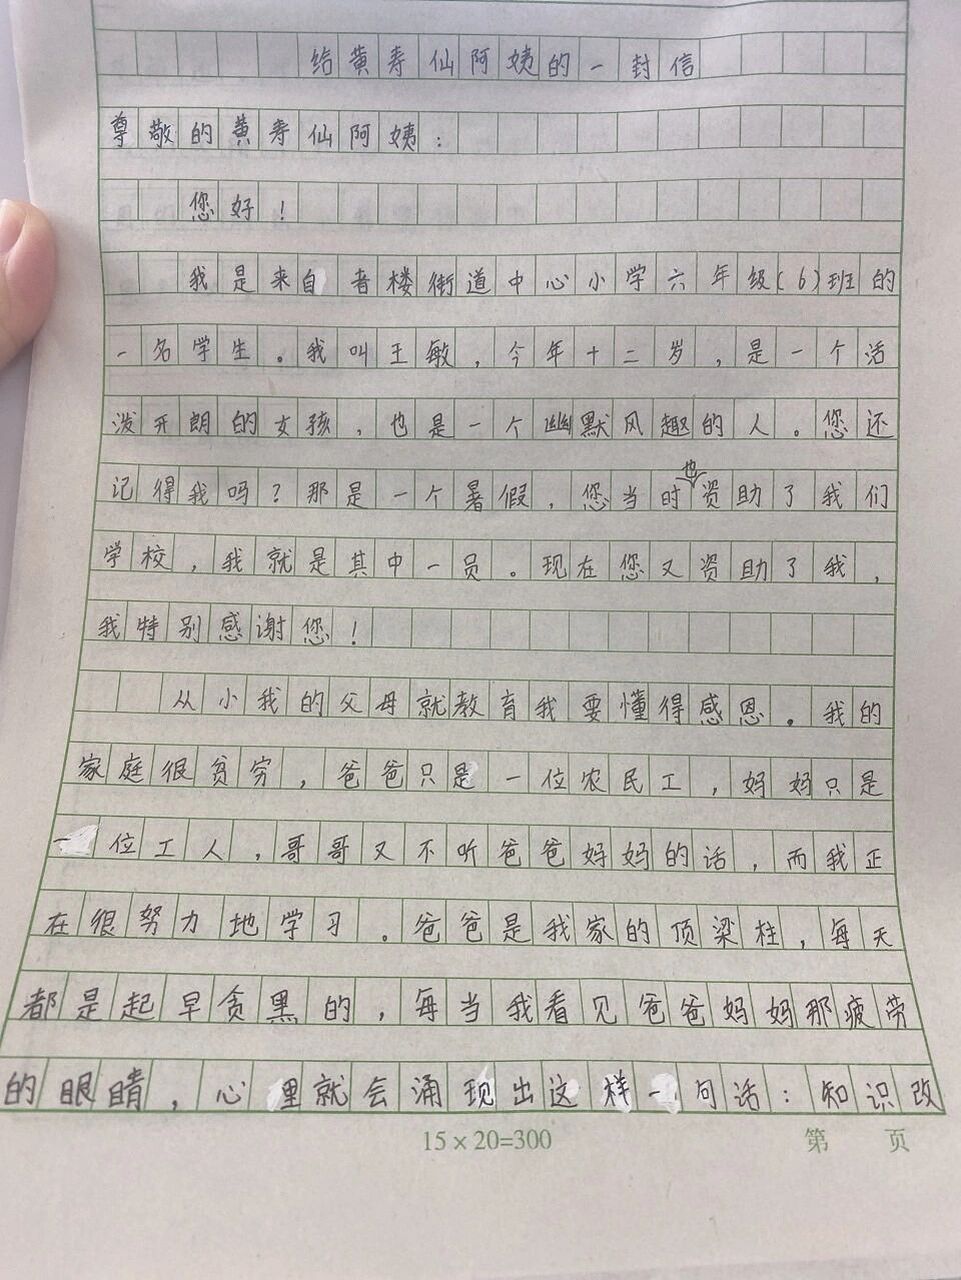 给黄寿仙阿姨的一封信
尊敬的黄寿仙阿姨：
您好！
我是来自者楼街道中心小学六年级(6)班的
一名学生。我叫王敏，今年十二岁，是一个活
泼开朗的女孩，也是一个幽默风趣的人。您还
记得我吗？那是一个暑假，您当时也资助了我们
学校，我就是其中一员。现在您又资助了我，
我特别感谢您！
从小我的父母就教育我要懂得感恩。我的
家庭很贫穷，爸爸只是一位农民工，妈妈只是
一位工人，哥哥又不听爸爸妈妈的话，而我正
在很努力地学习。爸爸是我家的顶梁柱，每天
都是起早贪黑的，每当我看见爸爸妈妈那疲劳
的眼睛，心里就会涌现出这样一句话：知识改
15×20=300
第 页